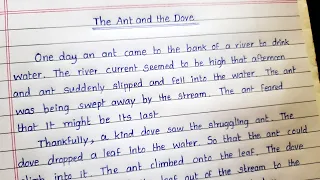 The Ant and the Dove
One day an ant came to the bank of a river to drink
water. The river current seemed to be high that afternoon
and ant suddenly slipped and fell into the water. The ant
was being swept away by the stream. The ant feared
that it might be its last
Thankfully, a kind dove saw the struggling ant. The
dove dropped a leaf into the water. So that the ant could
climb into it. The ant climbed onto the leaf. The dove
leaf out of the stream to the